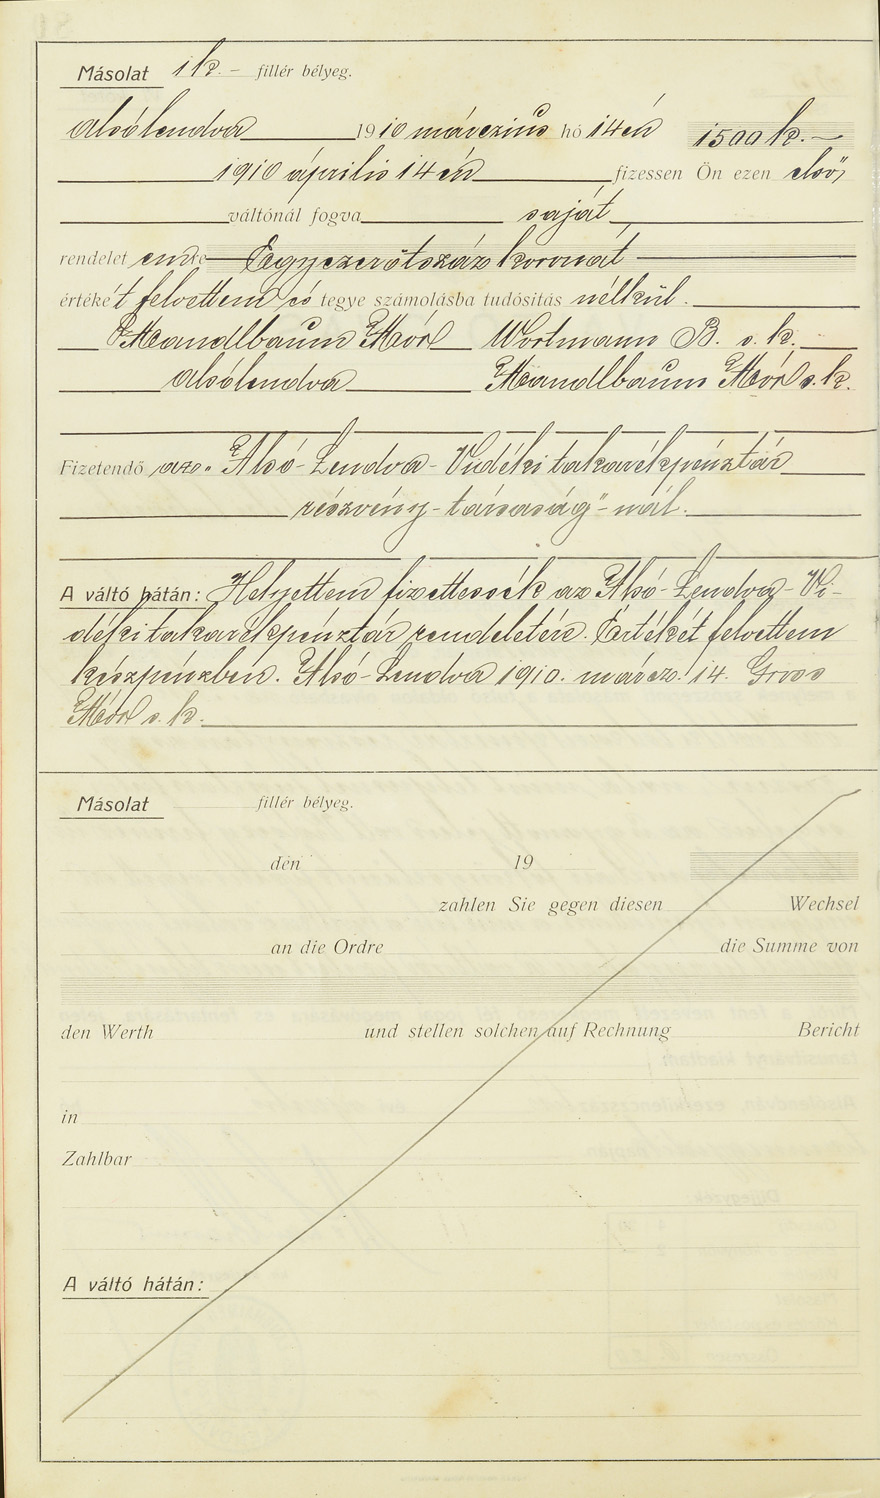 Másolat 1 k. – fillér bélyeg.
Alsólendva 1910 márczius hó 14én 1500 k. –
1910 április 14 én fizessen Ön ezen első
váltónál fogva saját
rendelet emre Egyezerötszáz koronát
értékét felvettem és tegye számolásba tudósítás nélkül.
Mandlbaum Mór Wortmann B. s. k.
Alsólendva Mandlbaum Mór s. k.
Fizetendő az „Alsó-Lendva-Vidéki takarékpénztár
részvény-társaság"-nál.
A váltó hátán: Helyettem fizettessék az Alsó-Lendva-Vi-
déki takarékpénztár rendeletére. Értékét felvettem
készpénzben. Alsó-Lendva 1910. márcz. 14. Gross
Mór s. k.
Másolat fillér bélyeg.
den 19
zahlen Sie gegen diesen Wechsel
an die Ordre die Summe von
den Werth und stellen solchen auf Rechnung Bericht
in
Zahlbar
A váltó hátán: